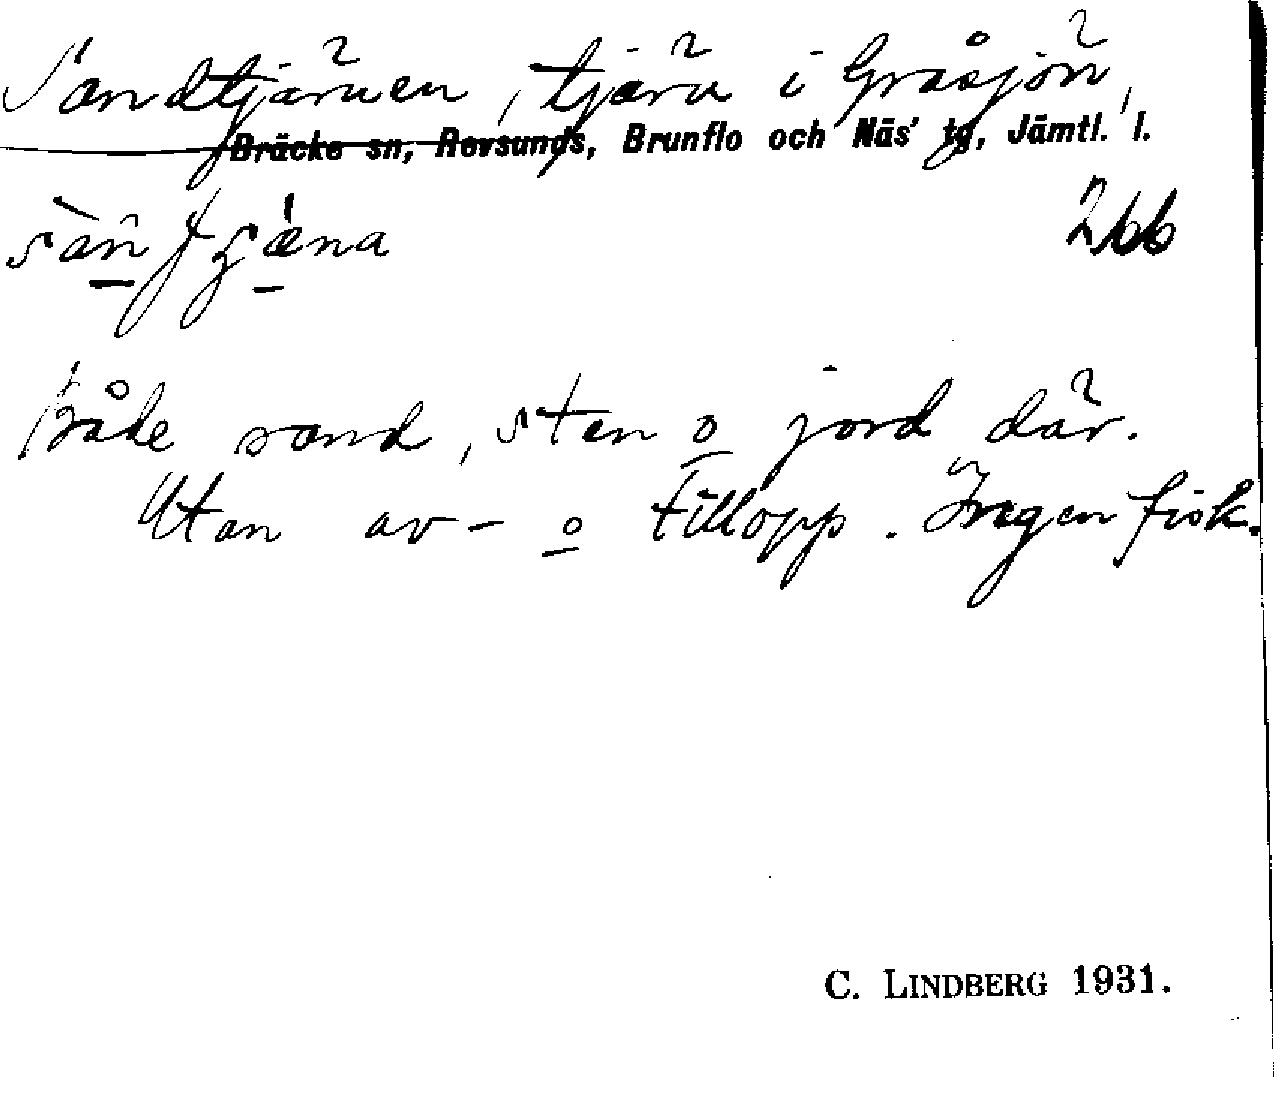 Sandtjärnen, tjärn i Gråsjön,
Bräcke sn, Revsunds, Brunflo och Näs' tg, Jämtl. l.
266
Både sand, sten o jord där.
Utan av- o tillopp. Ingen fisk.
C. LINDBERG 1931.